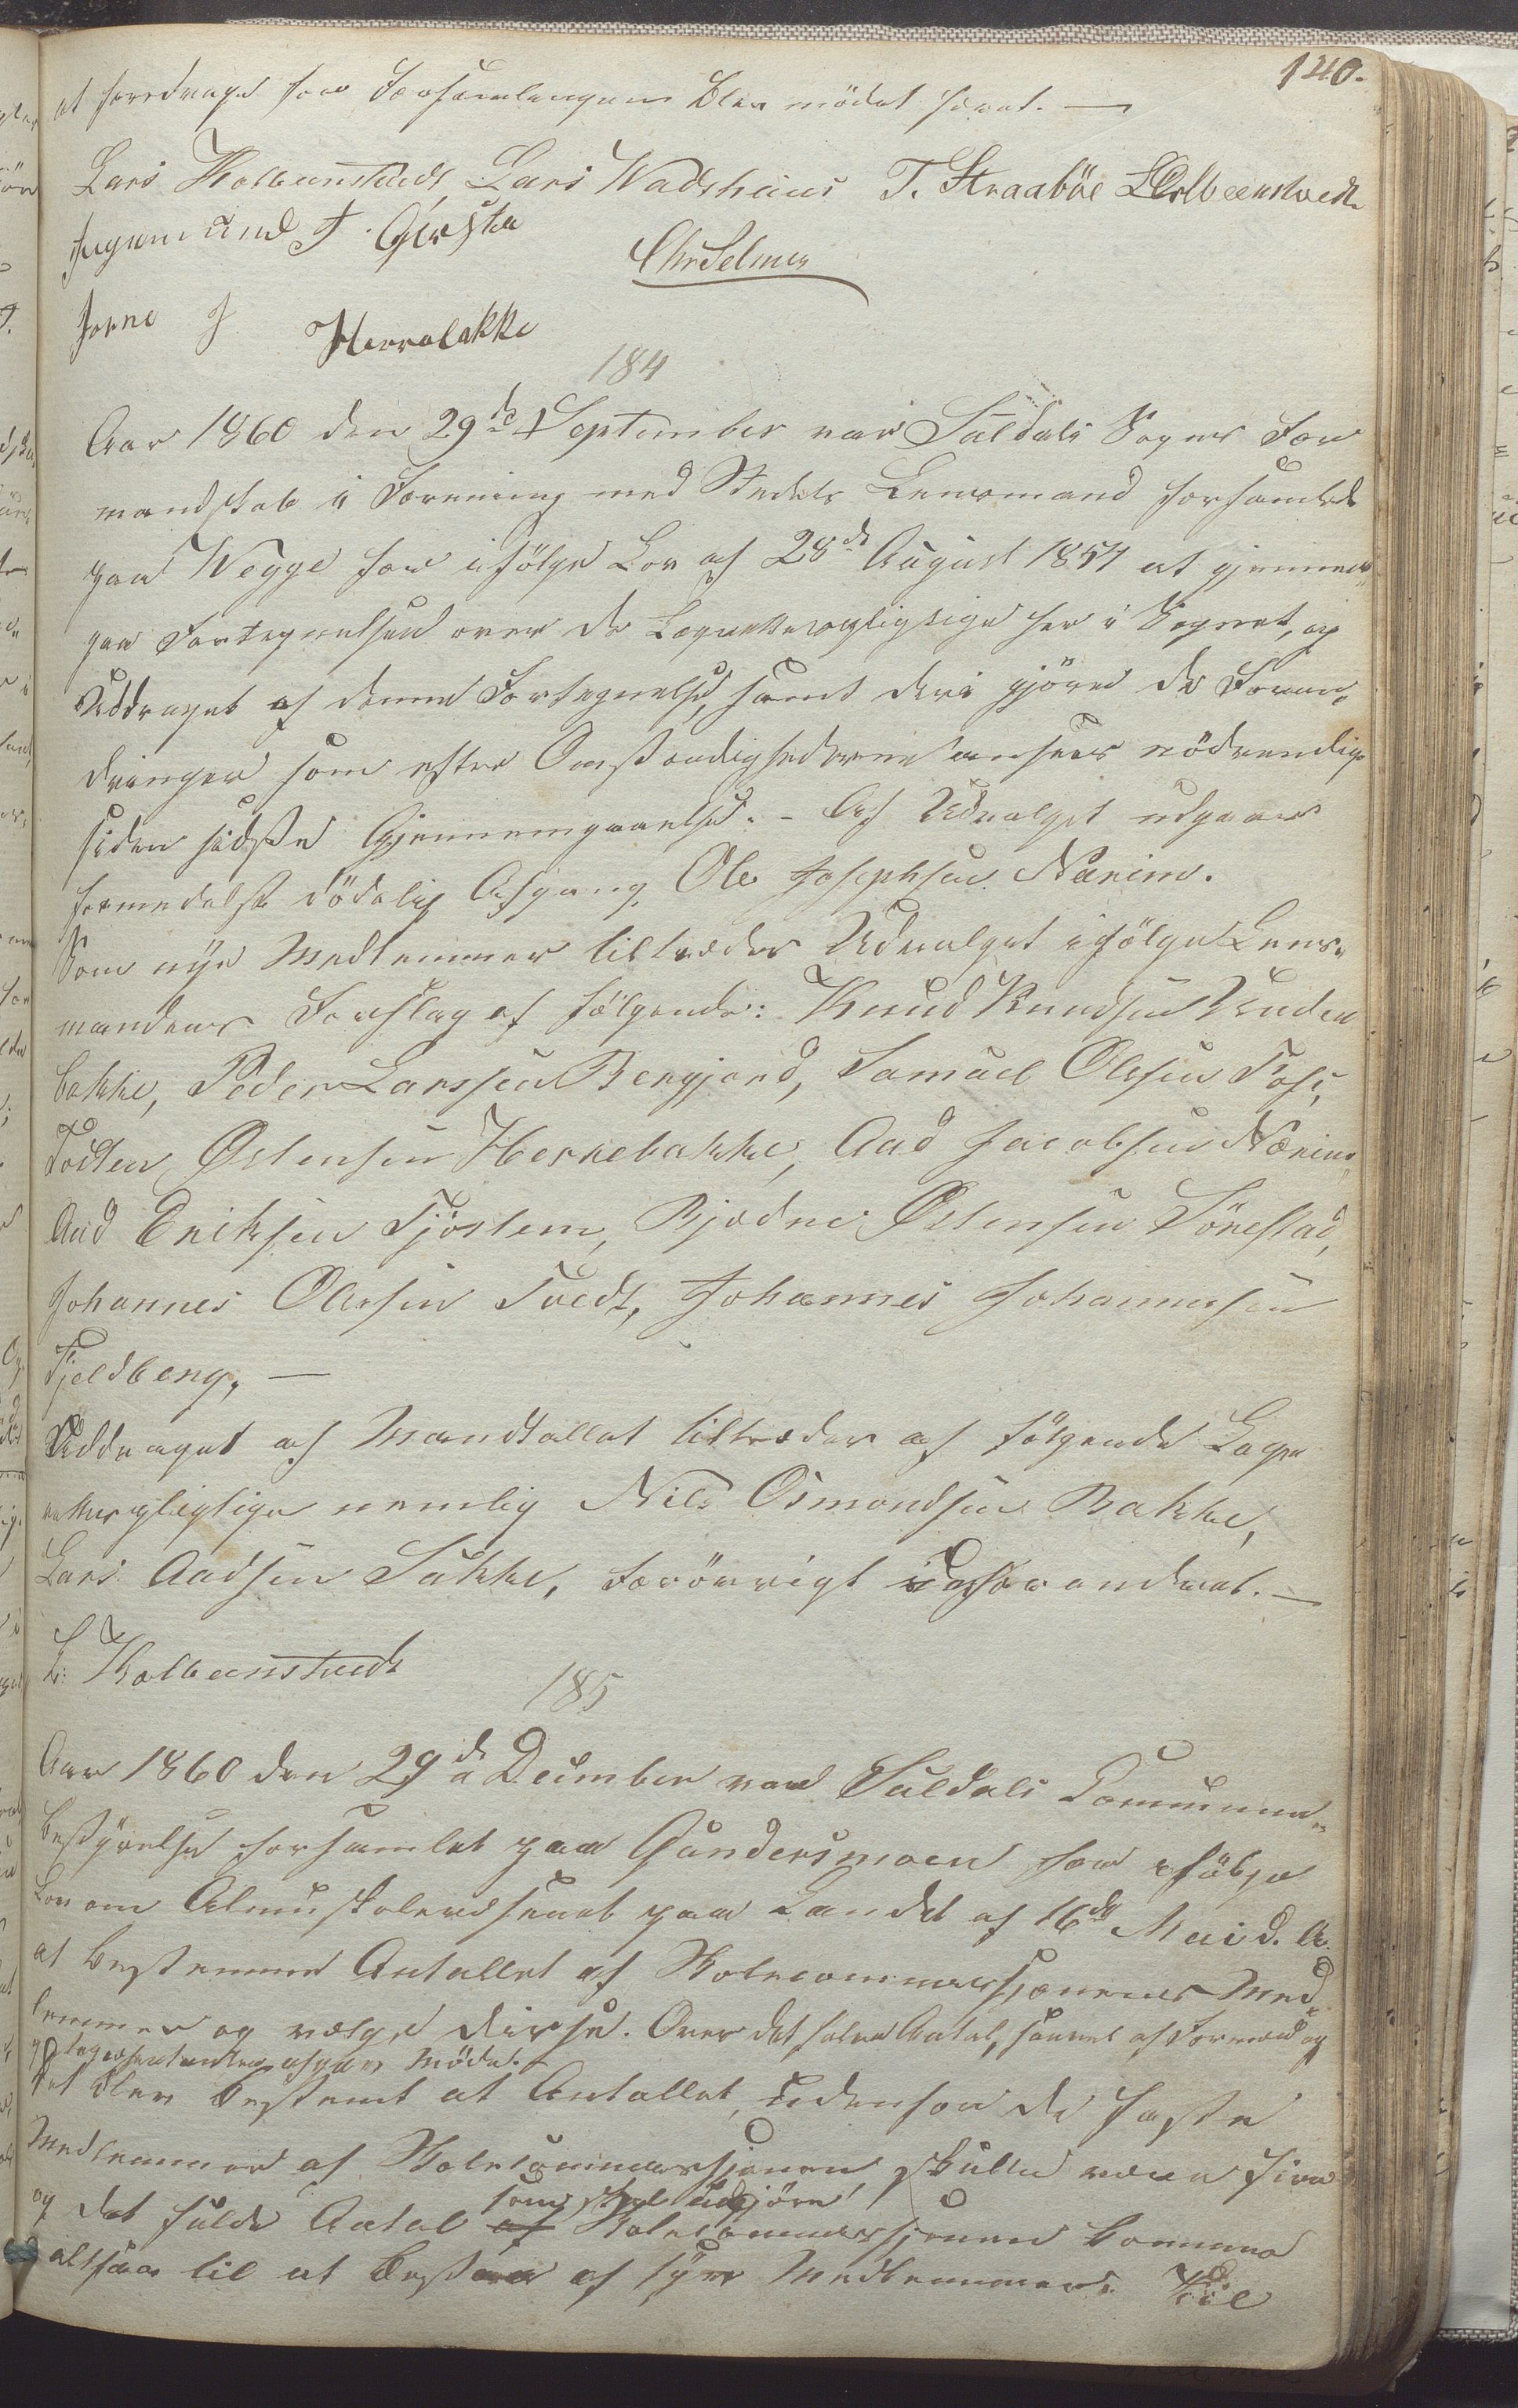 140.
at foredrage for Forsamlingen blev mödet hævet. —
Lars Kolbeinstvedt Lars Wadshuus T. Straabøe L Kolbeenstvedt
Ingemund T. Gjerstø
Chr Selmer
Jone J Herrabakke
184
Aar 1860 den 29de September var Suldals Sogns For
mandskab i Forening med Stedets Lensmand forsamlet
paa Wegge for ifölge Lov af 28de August 1854 at gjennem„
gaa Fortegnelsen over de Lagrettespligtige her i Sognet, og
Uddraget af denne Fortegnelse, samt deri gjöre de Foran„
dringer som efter Omstændighederne ansees nödvendige
siden sidste Gjennemgaaelse. - Af Udvalget udgaaer
formedelst dödelig Afgang Ole Josephsen Nærim.
Som nye Medlemmer tiltræder Udvalget ifölge Lens„
mandens Forslag af fölgende: Knud Knudsen Kuden
bakke, Peder Larssen Bergjord, Samuel Olsen Foss,
Torsten Østensen Herrebakke, Aad Jacobsen Nærim
Aad Eriksen Tjöstem, Bjodne Østensen Sörestad,
Johannes Olersen Tvedt, Johannes Johannessen
Fjeldberg, —
Uddraget af Mandtallet tiltræder af fölgende Lagre
ettespligtige nemlig Nils Osmondsen Bakke,
Lars Aadsen Sukke, Forövrigt uforandret. —
L: Kolbeenstvedt
185
Aar 1860 den 29de December var Suldals Commune„
bestyrelse forsamlet paa Gundersmoen for ifölge
Lov om Almueskolevæsenet paa Landet af 16de Mai d. A.
at bestemme Antallet af Skolecommissjonens Med„
lemmer og vælge disse. Over det halve Antal, saavel af Formænd og
Repræsentanter afgav Möde. -
Det blev bestemt at Antallet, udenfor de faste
Medlemmer af Skolecommissjonen skulle være fire
og det fulde Antal af som skal udgjöre Skolecommissjonen kommer
altsaa til at bestaae af syv Medlemmer. Til